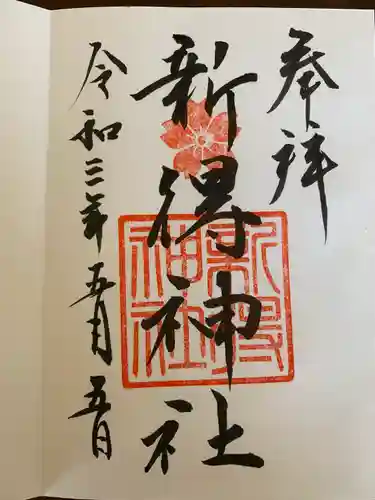 奉拝
新得神社
令和三年五月五日
新得
神社